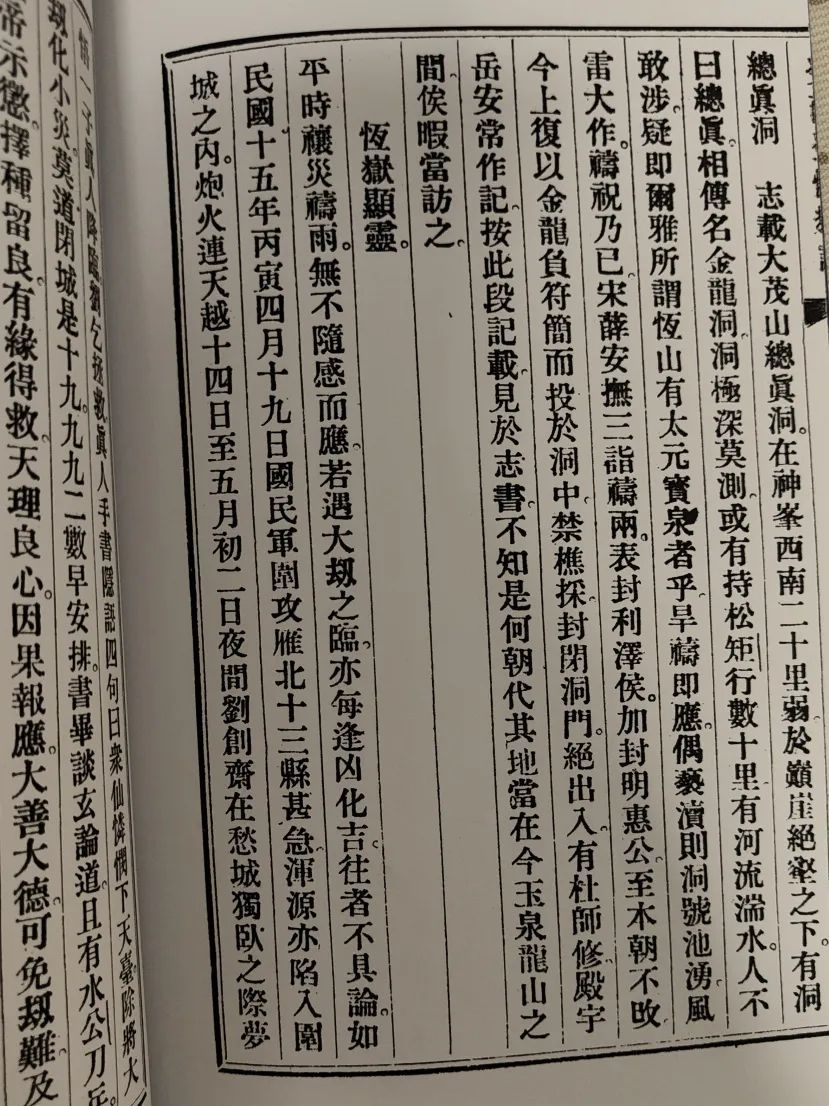 總眞洞　志載大茂山總眞洞。在神峯西南二十里。弱於巓崖絕壑之下。有洞
曰總眞。相傳名金龍洞。洞極深莫測。或有持松矩行數十里有河流湍水。人不
敢涉。疑即爾雅所謂恆山有太元寶泉者乎。旱禱即應。偶褻瀆則洞號池湧風
雷大作。禱祝乃已。宋薛安撫三詣禱兩。表封利澤侯。加封明惠公。至木朝不攺
今上復以金龍負符簡而投於洞中。禁樵採。封閉洞門。絕出入。有杜師修殿宇
岳安常作記。按此段記載。見於志書。不知是何朝代。其地當在今玉泉龍山之
間。俟暇當訪之。
恆嶽顯靈。
平時禳災禱雨。無不隨感而應。若遇大刼之臨。亦每逢凶化吉。往者不具論。如
民國十五年丙寅四月十九日國民軍圍攻雁北十三縣甚急。渾源亦陷入圍
城之內。炮火連天越十四日至五月初二日夜間劉創齋在愁城獨臥之際夢
悟一子眞人降臨猶乞拯救眞人手書隱語四句曰衆仙憐憫下天臺除將大
刼化小災。莫道閉城是十九。九九二數早安排。書畢談玄論道。且有水公刀兵。
帝示懲。擇種留良。有緣得救。天理良心。因果報應。大善大德。可免刼難及